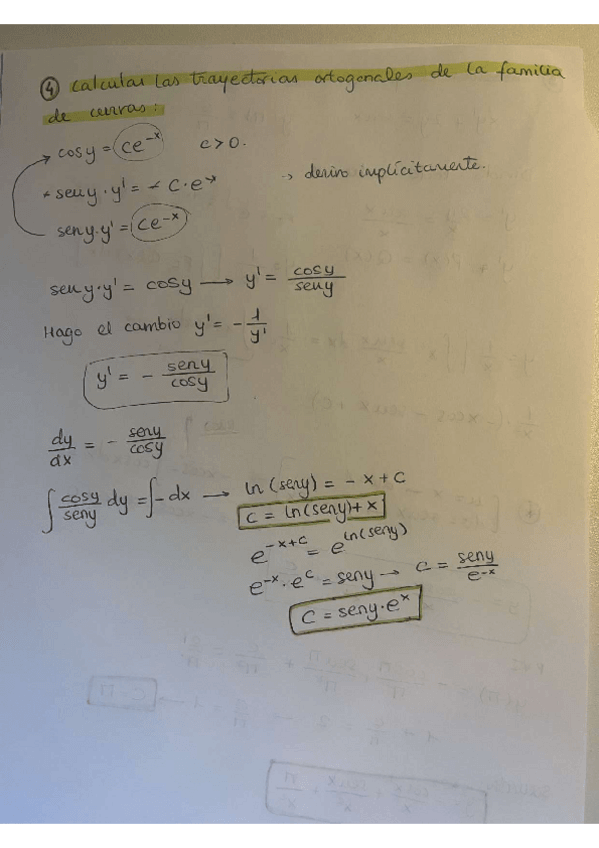 ④ Calcular las trayectorias ortogonales de la familia
de curvas:
cosy = ce^-x   c>0.
-seny·y' = -c·e^-x   → derivo implícitamente.
seny·y' = ce^-x
seny·y' = cosy → y' = cosy/seny
Hago el cambio y' = -1/y'
y' = - seny/cosy
dy/dx = - seny/cosy
∫ cosy/seny dy = ∫-dx → ln(seny) = -x+c
c = ln(seny)+x
e^-x+c = e^ln(seny)
e^-x · e^c = seny → c = seny/e^-x
C = seny·e^x